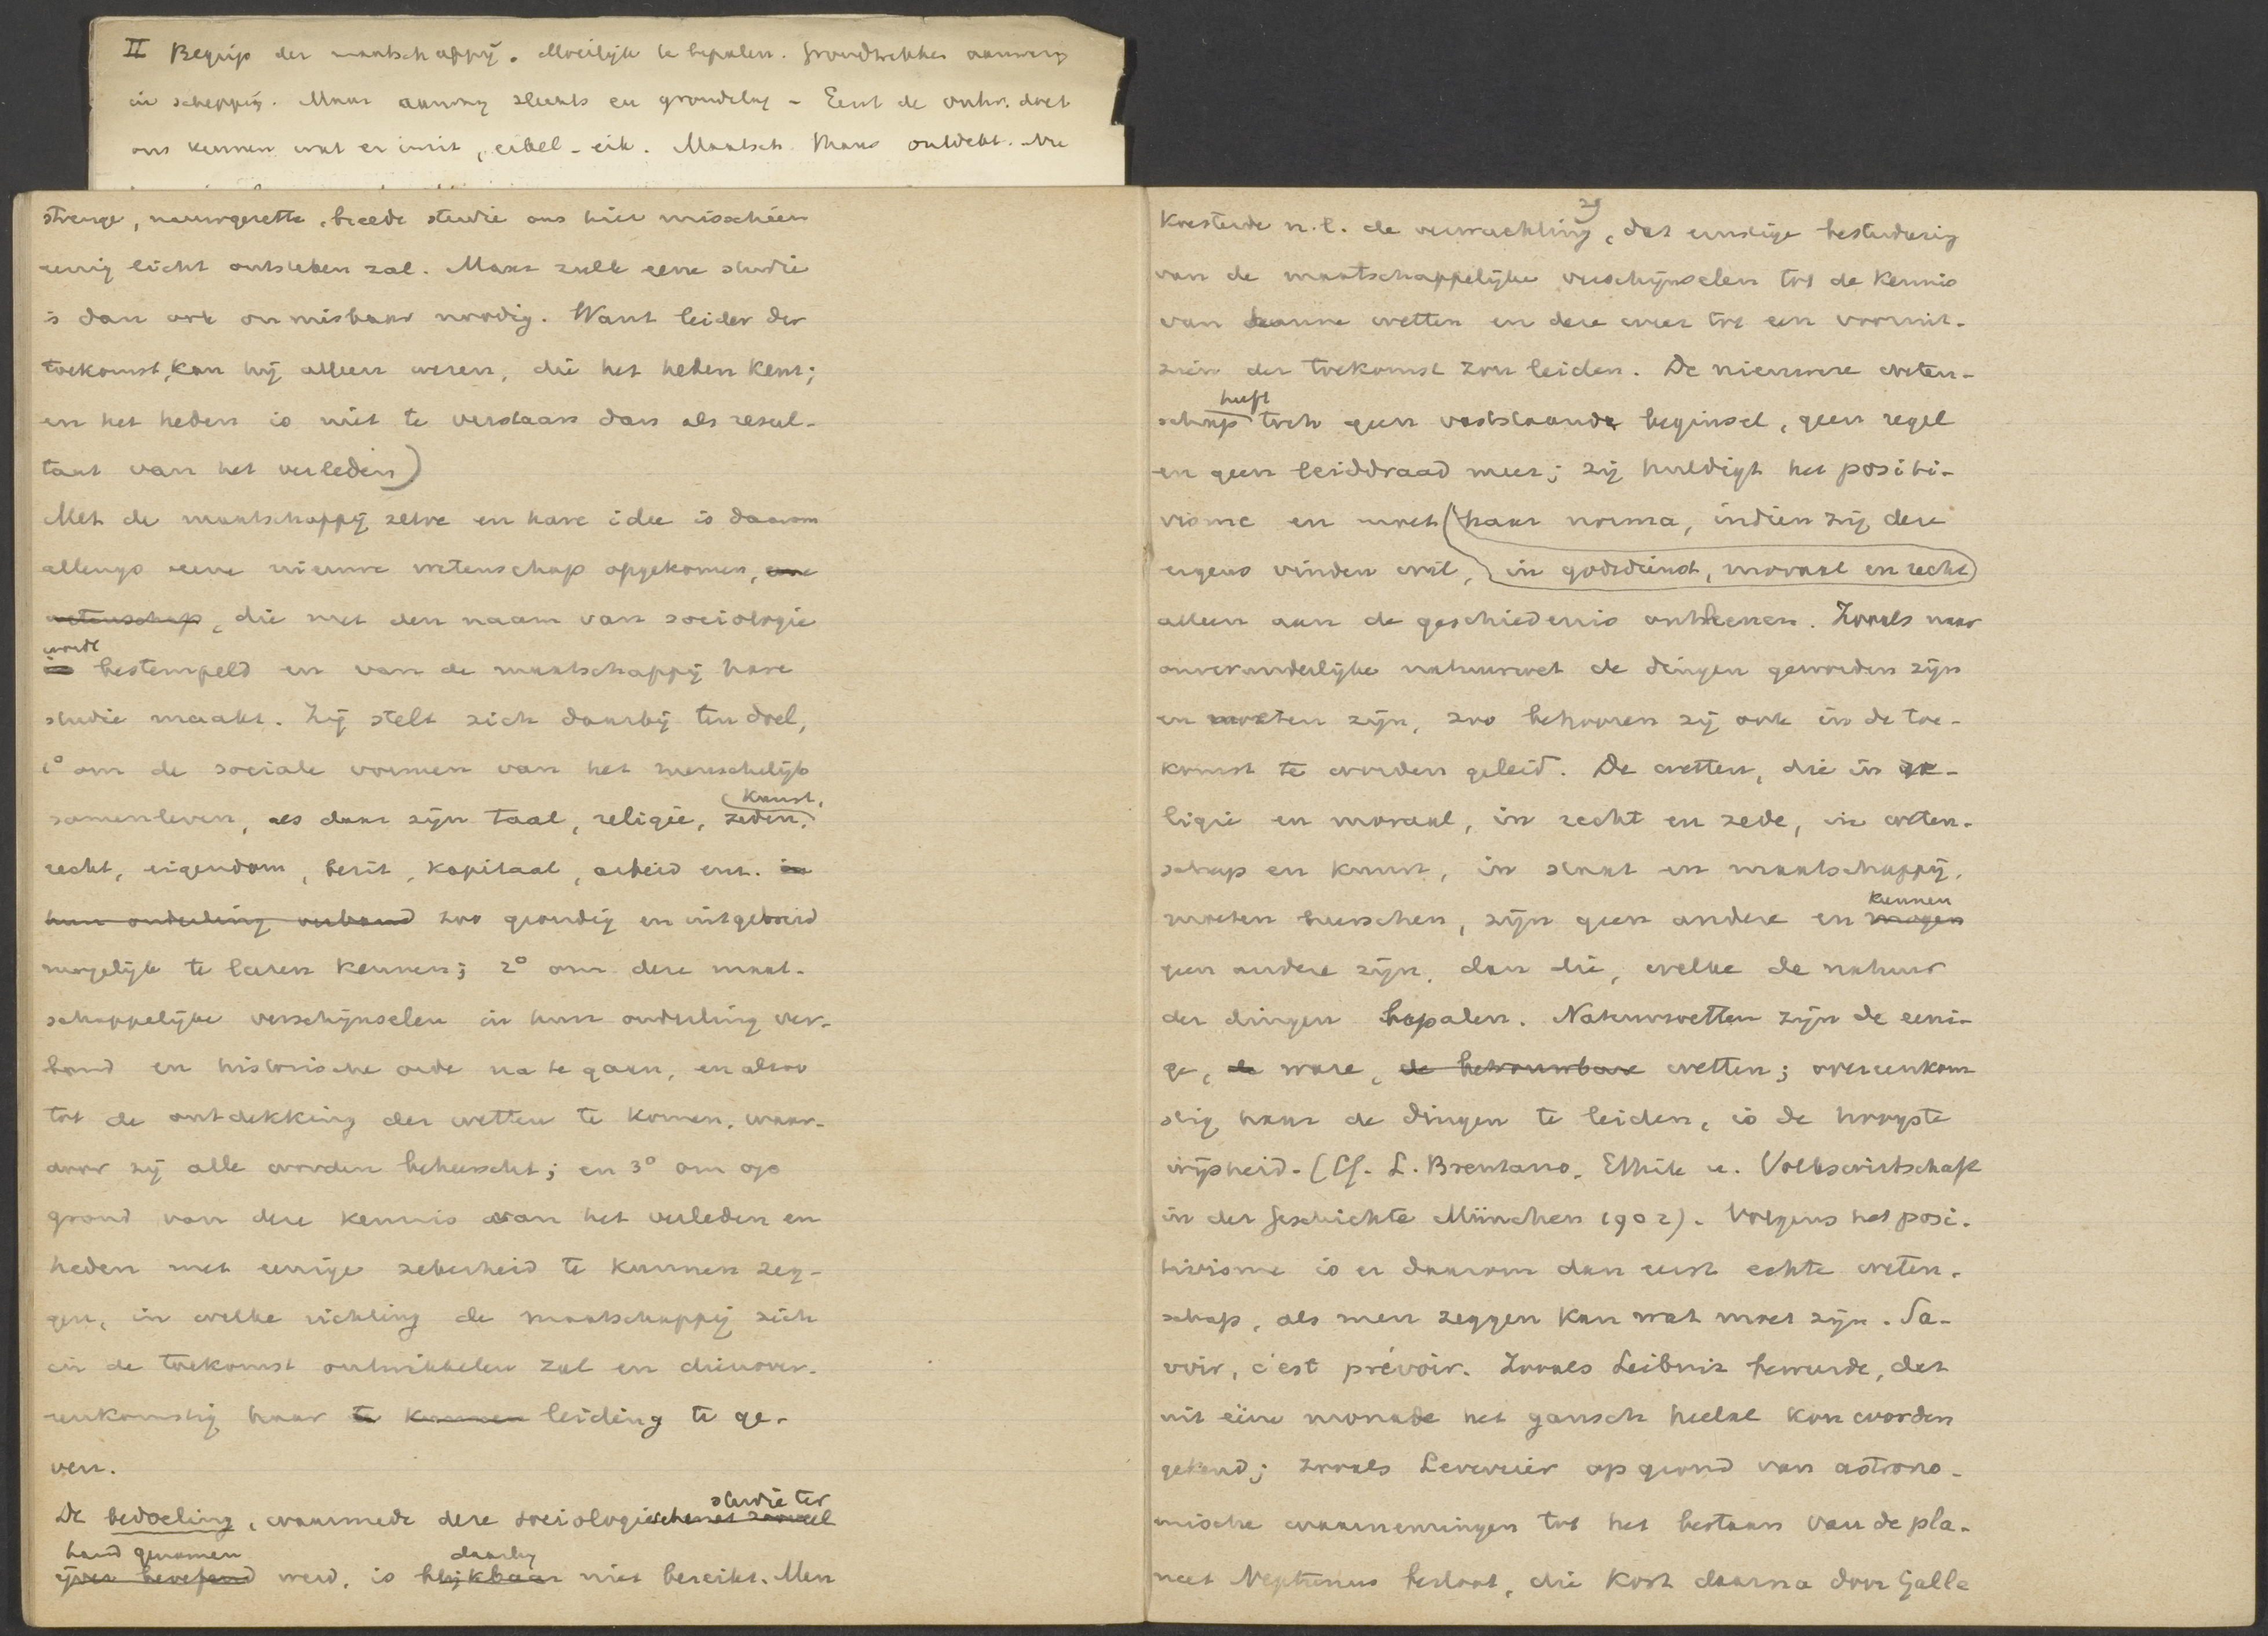 II Begrip der maatschappij. Moeilijk te bepalen. Grondtrekken aanwezig
in schepping. Maar aanleg slechts en grondslag – Eerst de ontw. doet
ons kennen wat er in is, eikel-eik. Maatsch. Mans ontdekt. Nu
strenge, nauwgezette, breede studie ons hier misschien
eenig licht ontsteken zal. Maar zulk eene studie
is dan ook onmisbaar noodig. Want leider der
toekomst, kan hij alleen wezen, die het heden kent;
en het heden is niet te verstaan dan als resul-
tant van het verleden)
Met de maatschappij zelve en hare idee is daarom
allengs eene nieuwe wetenschap opgekomen, eene
wetenschap, die met den naam van sociologie
wordt
is bestempeld en van de maatschappij hare
studie maakt. Zij stelt zich daarbij ten doel,
1° om de sociale vormen van het menschelijk
kunst,
samenleven, als daar zijn taal, religie, zeden,
recht, eigendom, bezit, kapitaal, arbeid enz. in
hun onderling verband zoo grondig en uitgebreid
mogelijk te leeren kennen; 2° om deze maat-
schappelijke verschijnselen in hun onderling ver-
band en historische orde na te gaan, en alzoo
tot de ontdekking der wetten te komen, waar-
door zij alle worden beheerscht; en 3° om op
grond van deze kennis van het verleden en
heden met eenige zekerheid te kunnen zeg-
gen, in welke richting de maatschappij zich
in de toekomst ontwikkelen zal en dienover-
eenkomstig haar te kunnen leiding te ge-
ven.
studie ter
De bedoeling, waarmede deze sociologische met zooveel
hand genomen daarbij
ijver beoefend werd, is blijkbaar niet bereikt. Men
29
koesterde n.l. de verwachting, dat ernstige bestudering
van de maatschappelijke verschijnselen tot de kennis
van hanne wetten en deze weer tot een vooruit-
zien der toekomst zou leiden. De nieuwere weten-
heeft
schap toch geen vaststaande beginsel, geen regel
en geen leiddraad meer; zij huldigt het positi-
visme en moet (haar norma, indien zij deze
ergens vinden wil, in godsdienst, moraal en recht)
alleen aan de geschiedenis ontleenen. Zooals naar
onveranderlijke natuurwet de dingen geworden zijn
en moeten zijn, zoo behooren zij ook in de toe-
komst te worden geleid. De wetten, die in re-
ligie en moraal, in recht en zede, in weten-
schap en kunst, in staat en maatschappij,
kunnen
moeten heerschen, zijn geen andere en mogen
geen andere zijn, dan die, welke de natuur
der dingen bepalen. Natuurwetten zijn de eeni-
ge, de ware, de betrouwbare wetten; overeenkom
stig haar de dingen te leiden, is de hoogste
wijsheid. (Cf. L. Brentano, Ethik u. Volkswirtschaft
in der Geschichte München 1902). Volgens het posi-
tivisme is er daarom dan eerst echte weten-
schap, als men zeggen kan wat moet zijn. Sa-
voir, c'est prévoir. Zooals Leibniz beweerde, dat
uit eéne monade het gansch heelal kon worden
gekend; zooals Leverrier op grond van astrono-
mische waarnemingen tot het bestaan van de pla-
neet Neptunus besloot, die kort daarna door Galle